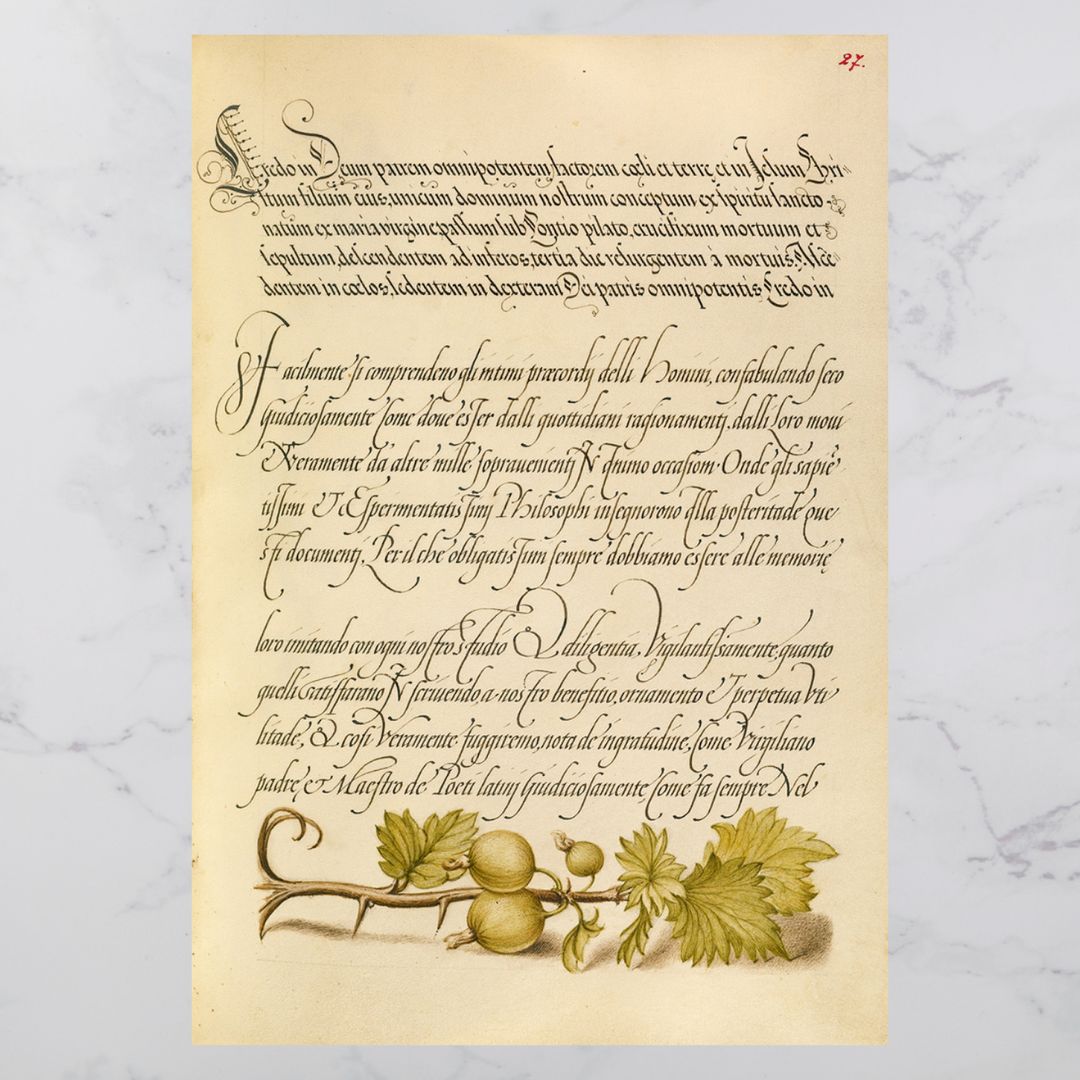 27.
Credo in Deum patrem omnipotentem, factorem cœli et terre, et in Jesum Chri=
stum filium eius, unicum dominum nostrum conceptum ex spiritu sancto
natum ex maria virgine, passum sub Pontio pilato, crucifixum mortuum et
sepultum, descendentem ad inferos, tertia die resurgentem à mortuis. Ascē=
dentem in cœlos, sedentem in dexteram Dei patris omnipotentis, Credo in
Facilmente si comprendeno gli intimi præcordij delli Homini, confabulando seco
Giudiciosamente Come doue esser dalli quottidiani ragionamenti, dalli Loro moui
Veramente da altre mille soprauenienti JN Animo occasioni. Onde gli sapiē
tissimi & Esperimentatissimij Philosophi insegnoreno Alla posteritade que
sti documenti. Per il che obligatissimi sempre dobbiamo essere alle memorie
loro imitando con ogni nostro studio & diligentia, Vigilantissamente, quanto
quelli JN scriuendo, a nostro benefitio, ornamento & perpetua vti
litade, & cosi Veramente fuggiremo, nota de ingratudine, Come Virgiliano
padre, & Maestro de Poeti latinj Giudiciosamente, Come fa sempre Nel